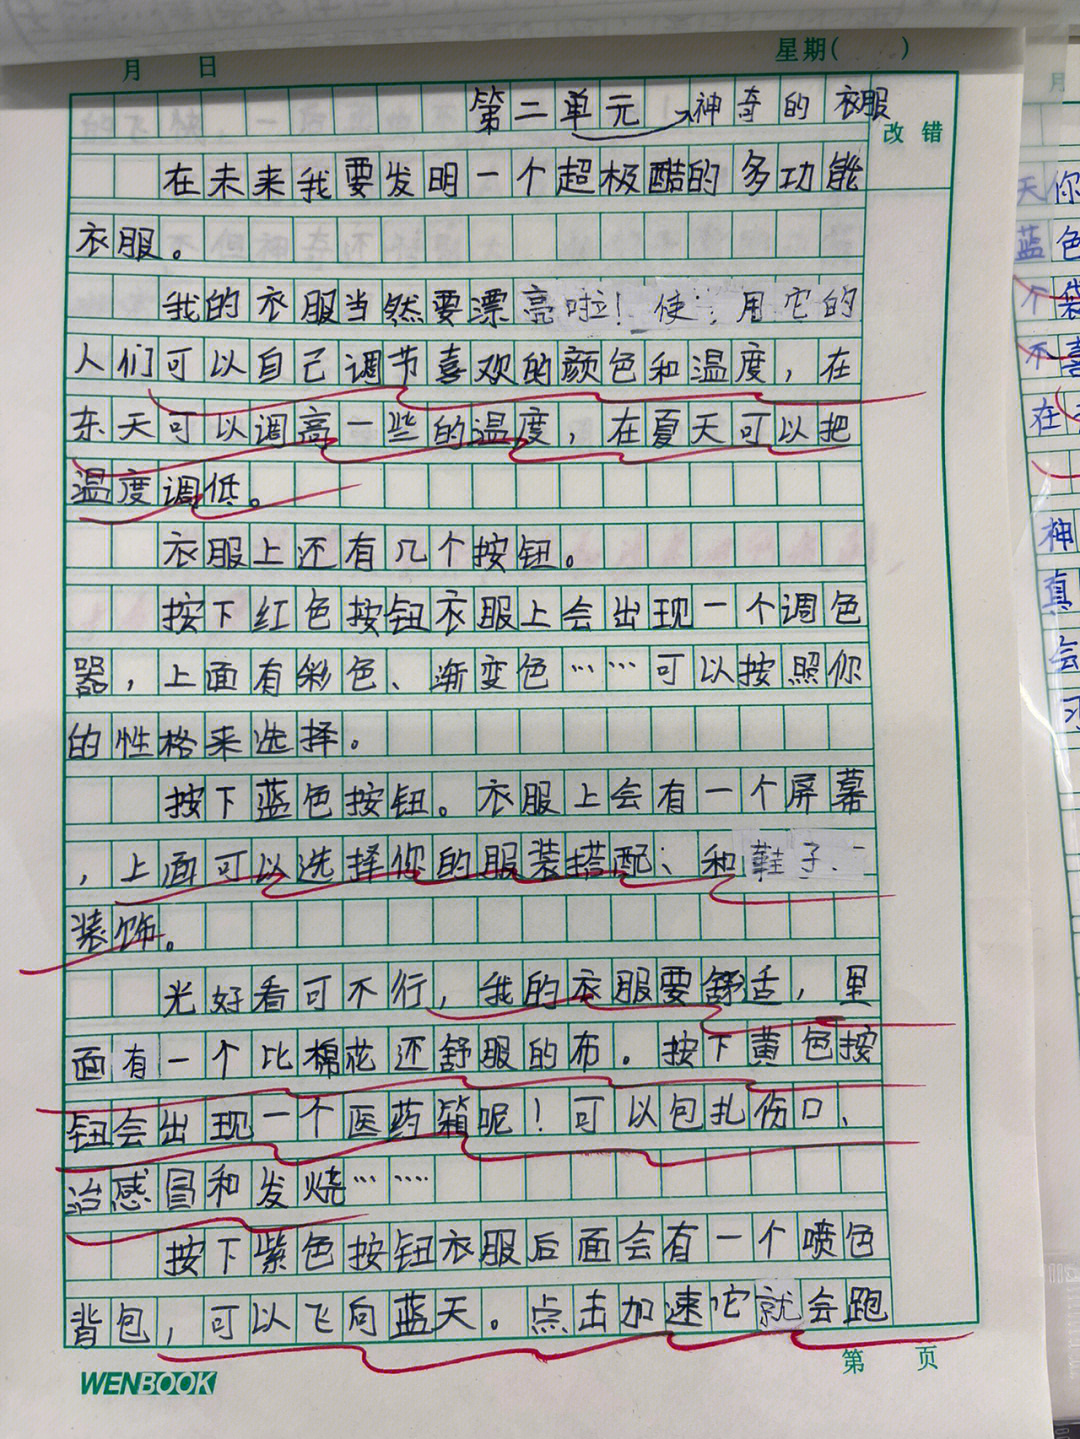 月 日 星期( )
第二单元 神奇的衣服
改错
在未来我要发明一个超极酷的多功能
衣服。
我的衣服当然要漂亮啦！使用它的
人们可以自己调节喜欢的颜色和温度，在
东天可以调高一些的温度，在夏天可以把
温度调低。
衣服上还有几个按钮。
按下红色按钮衣服上会出现一个调色
器，上面有彩色、渐变色……可以按照你
的性格来选择。
按下蓝色按钮。衣服上会有一个屏幕
，上面可以选择你的服装搭配、和鞋子、
装饰。
光好看可不行，我的衣服要舒适，里
面有一个比棉花还舒服的布。按下黄色按
钮会出现一个医药箱呢！可以包扎伤口、
治感冒和发烧……
按下紫色按钮衣服后面会有一个喷色
背包，可以飞向蓝天。点击加速它就会跑
第 页
WENBOOK
月
天你
蓝色
个袋
不喜
在
神
真
会